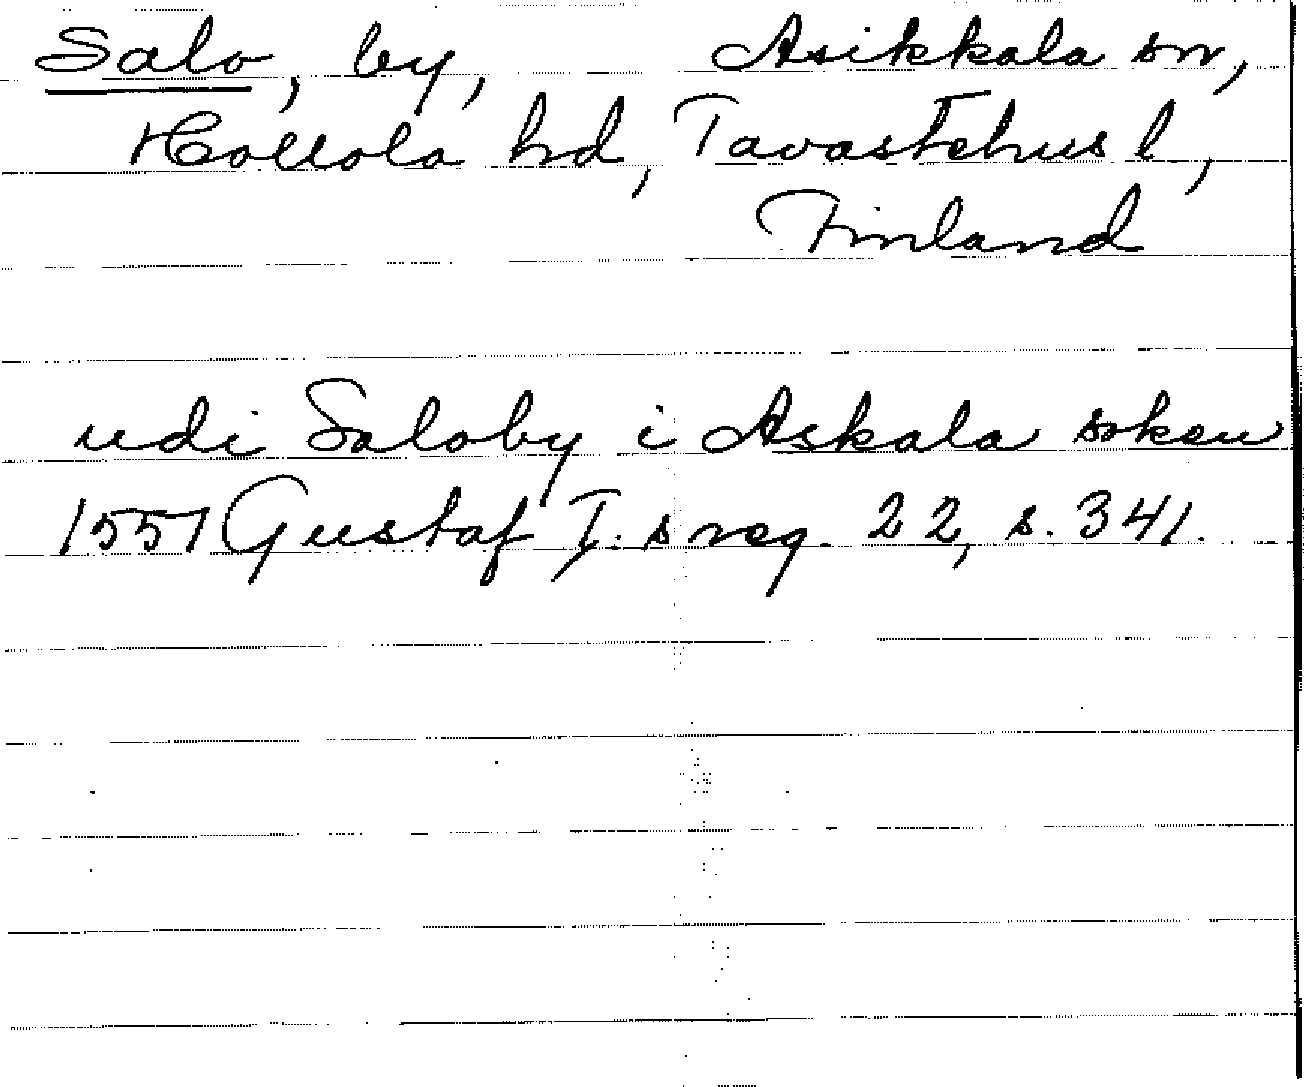 Salo, by, Asikkala sn,
Hollola hd, Tavastehus l,
Finland
udi Saloby i Askala soken
1557 Gustaf I.s reg. 22, s. 341.